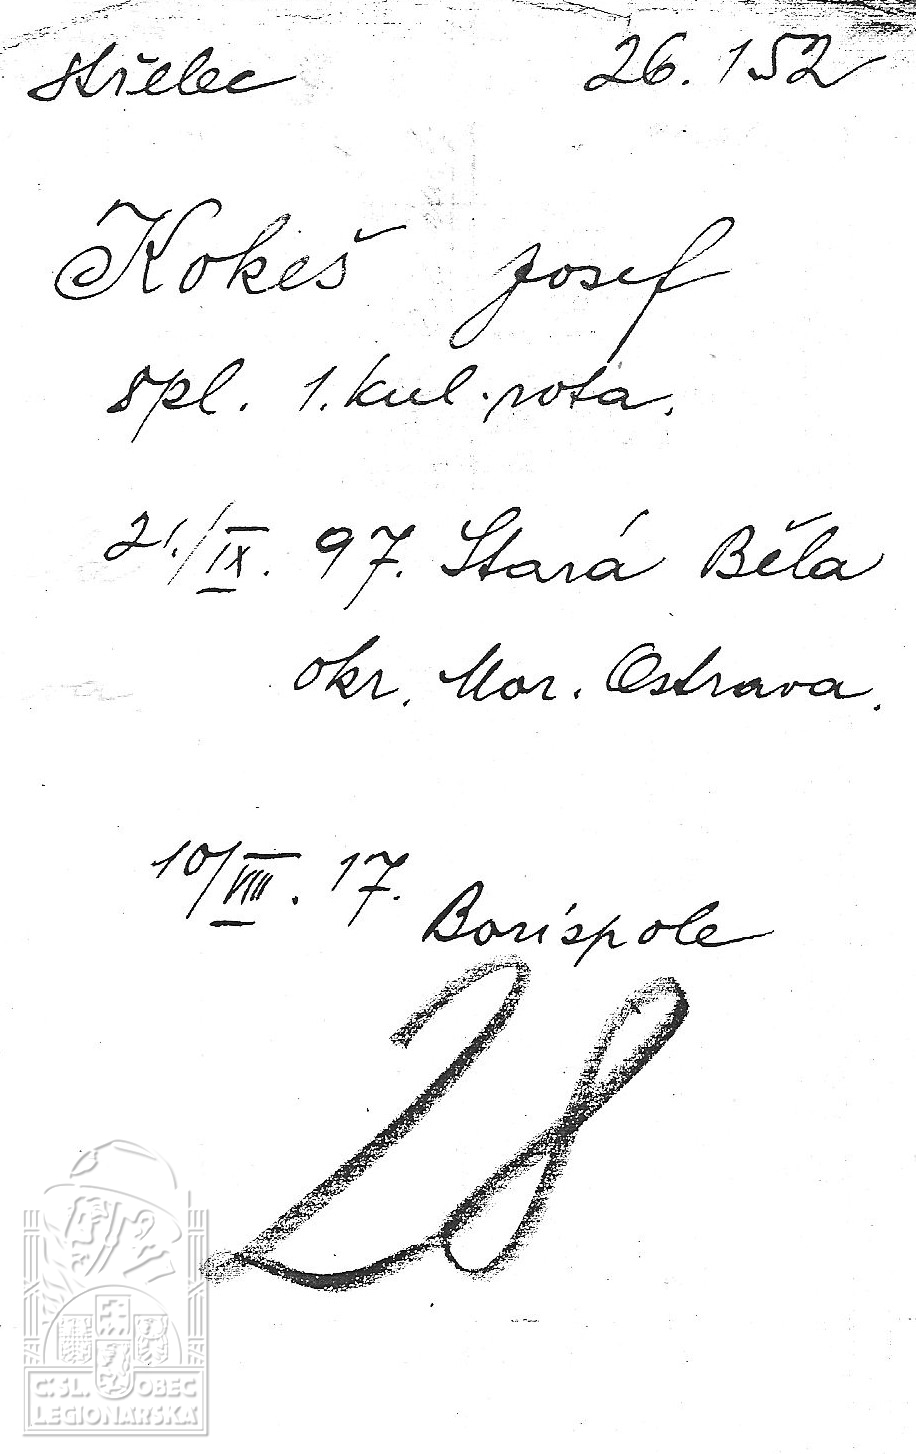 střelec 26.152
Kokeš Josef
spl. 1. kul. rota.
21./IX. 97. Stará Běla
okr. Mor. Ostrava.
10/VIII. 17. Borispole
28
Č.SL. OBEC
LEGIONÁŘSKÁ